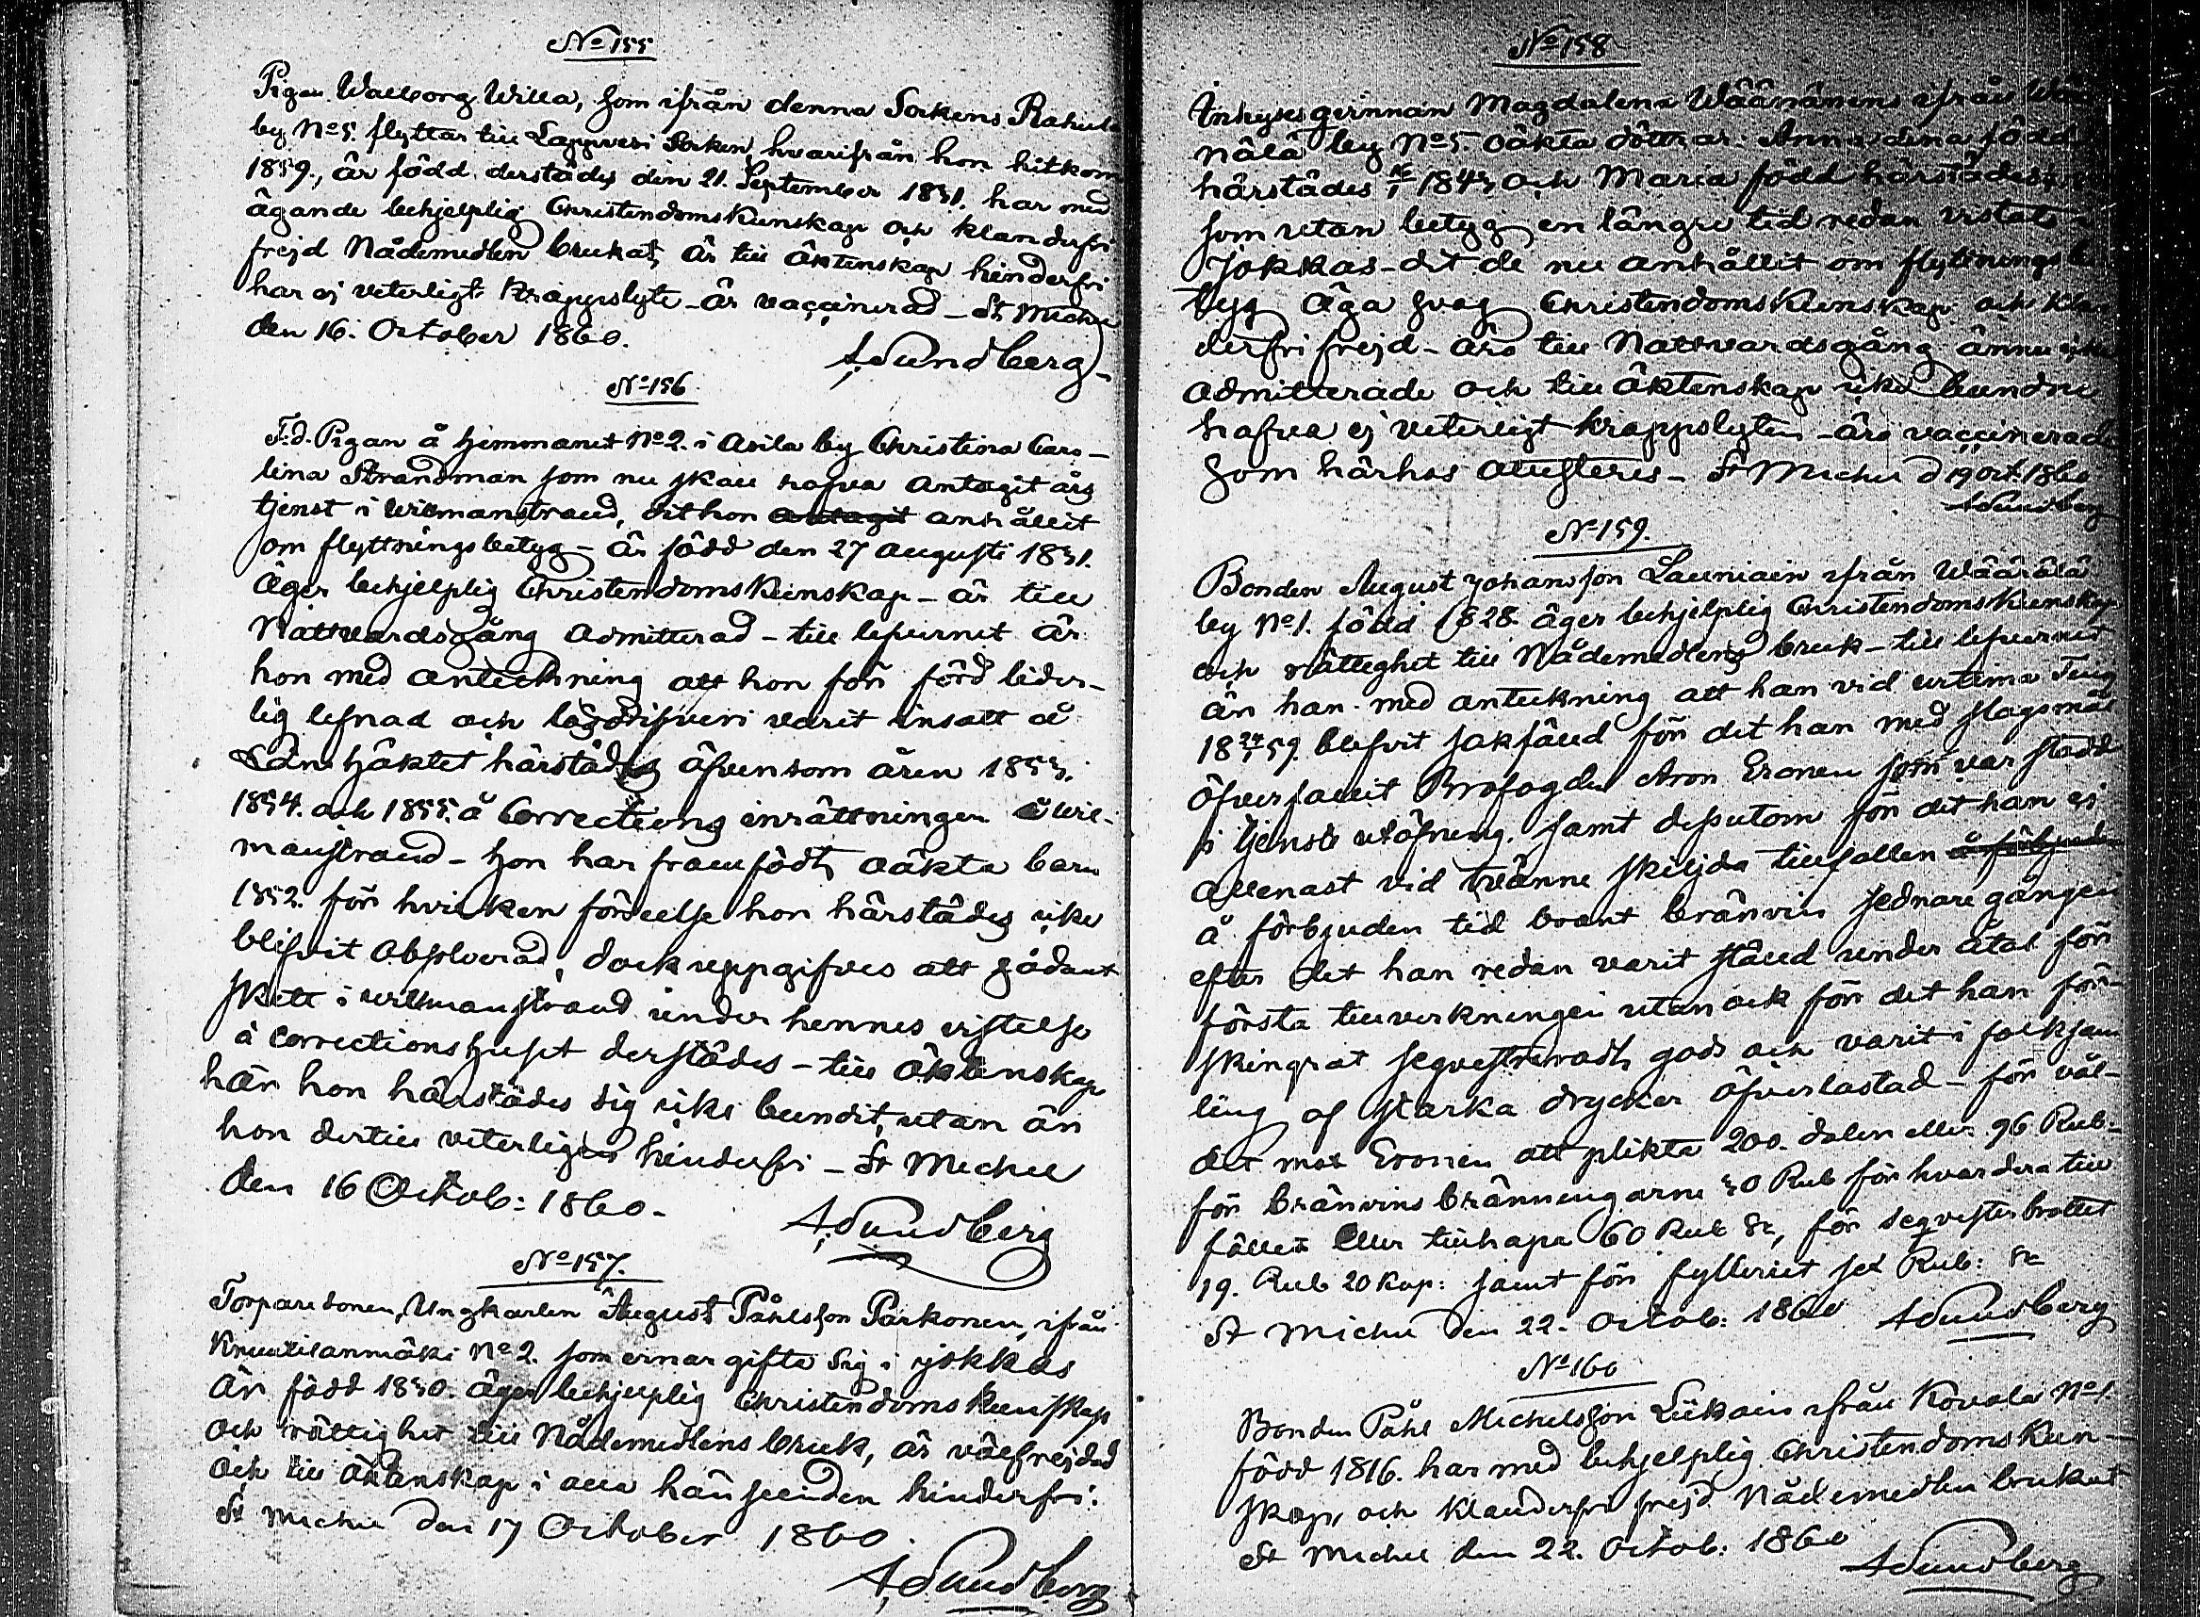 No 155
Pigan Walborg Willa, som ifrån denna Sockens Rahula
by No 5. flyttar till Lappvesi Socken hvarifrån hon hitkom
1859., är född derstädes den 21. September 1831. har med
ägande behjelplig Christendoms Kunskap och klanderfri
frejd Nådemedlen brukat, är till Äktenskap hinderfri
har ej veterligt kroppslyte - är vaccinerad - St Michel
den 16. October 1860.
A. Sundberg
No 156
F.d. Pigan å hemmanet No 2. i Asila by Christina Caro-
lina Strandman som nu skall hafva antagit års
tjenst i Wilmanstrand, dit hon antagit anhållit
om flyttningsbetyg - är född den 27 Augusti 1831.
Äger behjelplig Christendoms Kunskap - är till
Nattvardsgång admitterad - till lefvernet är
hon med anteckning att hon för förd lider-
lig lefnad och lösdrifveri varit insatt å
Länshäktet härstädes äfvensom åren 1853.
1854. och 1855. å Corrections inrättningen å Wil-
manstrand - hon har framfödt oäkta barn
1852. för hvilken förseelse hon härstädes icke
blifvit absolverad, dock uppgifves att sådant
skett i Wilmanstrand under hennes vistelse
å Correctionshuset derstädes - till Äktenskap
har hon härstädes sig icke bundit, utan är
hon dertill veterligen hinderfri - St Michel
den 16 Octob: 1860.
A. Sundberg
No 157.
Torparesonen, Ungkarlen August Påhlsson Parkonen, ifrån
Knuutilanmäki No 2. som ernar gifta sig i Jokkas
är född 1830. äger behjelplig Christendoms Kunskap
och rättighet till Nådemedlens bruk, är välfrejdad
och till Äktenskap i alla hänseenden hinderfri.
St Michel den 17 October 1860.
A. Sundberg
No 158
Inhysesqvinnan Magdalena Wäänänens ifrån
nälä by No 5. oäkta döttrar: Anna Lena född
härstädes 1843 och Maria född härstädes
som utan betyg en längre tid redan vistats i
Jokkas - dit de nu anhållit om flyttningsbe
tyg äga svag Christendoms Kunskap och klan
derfri frejd - äro till Nattvardsgång ännu icke
admitterade och till äktenskap icke bundne
hafva ej veterligt kroppslyten - äro vaccinerade
som härhos attesteras - St Michel d 19 Oct. 1860
A Sundberg
No 159.
Bonden August Johansson Launiain ifrån Wäärälä
by No 1. född 1828. äger behjelplig Christendoms Kunskap
och rättighet till Nådemedlens bruk - till lefvernet
är han med anteckning att han vid urtima Ting
18 59. blifvit sakfälld för det han med slagsmål
öfverfallit Brofogden Aron Eronen som var stadd
i tjenste utöfning. samt desutom för det han ej
allenast vid tvänne skiljda tillfällen å förbjuden
å förbjuden tid bränt bränvin sednare gången
efter det han redan varit ställd under åtal för
första tillverkningen utan ock för det han för-
skingrat seqvestreradt gods och varit i folksam
ling af starka drycker öfverlastad - för vål-
det mot Eronen att plikta 200. daler eller 96 Rub.
för bränvins bränningarne 30 Rub för hvardera till
fället eller tillhopa 60 Rub Sr, för seqvester brottet
19. Rub 20 Kop: samt för fylleriet sex Rub: Sr
St Michel den 22. Octob: 1860 A Sundberg
No 160
Bonden Påhl Michelsson Liikain ifrån Kovala No 1
född 1816. har med behjelplig Christendoms Kun-
skap, och klanderfri frejd Nådemedlen brukat
St Michel den 22. Octob: 1860
A Sundberg